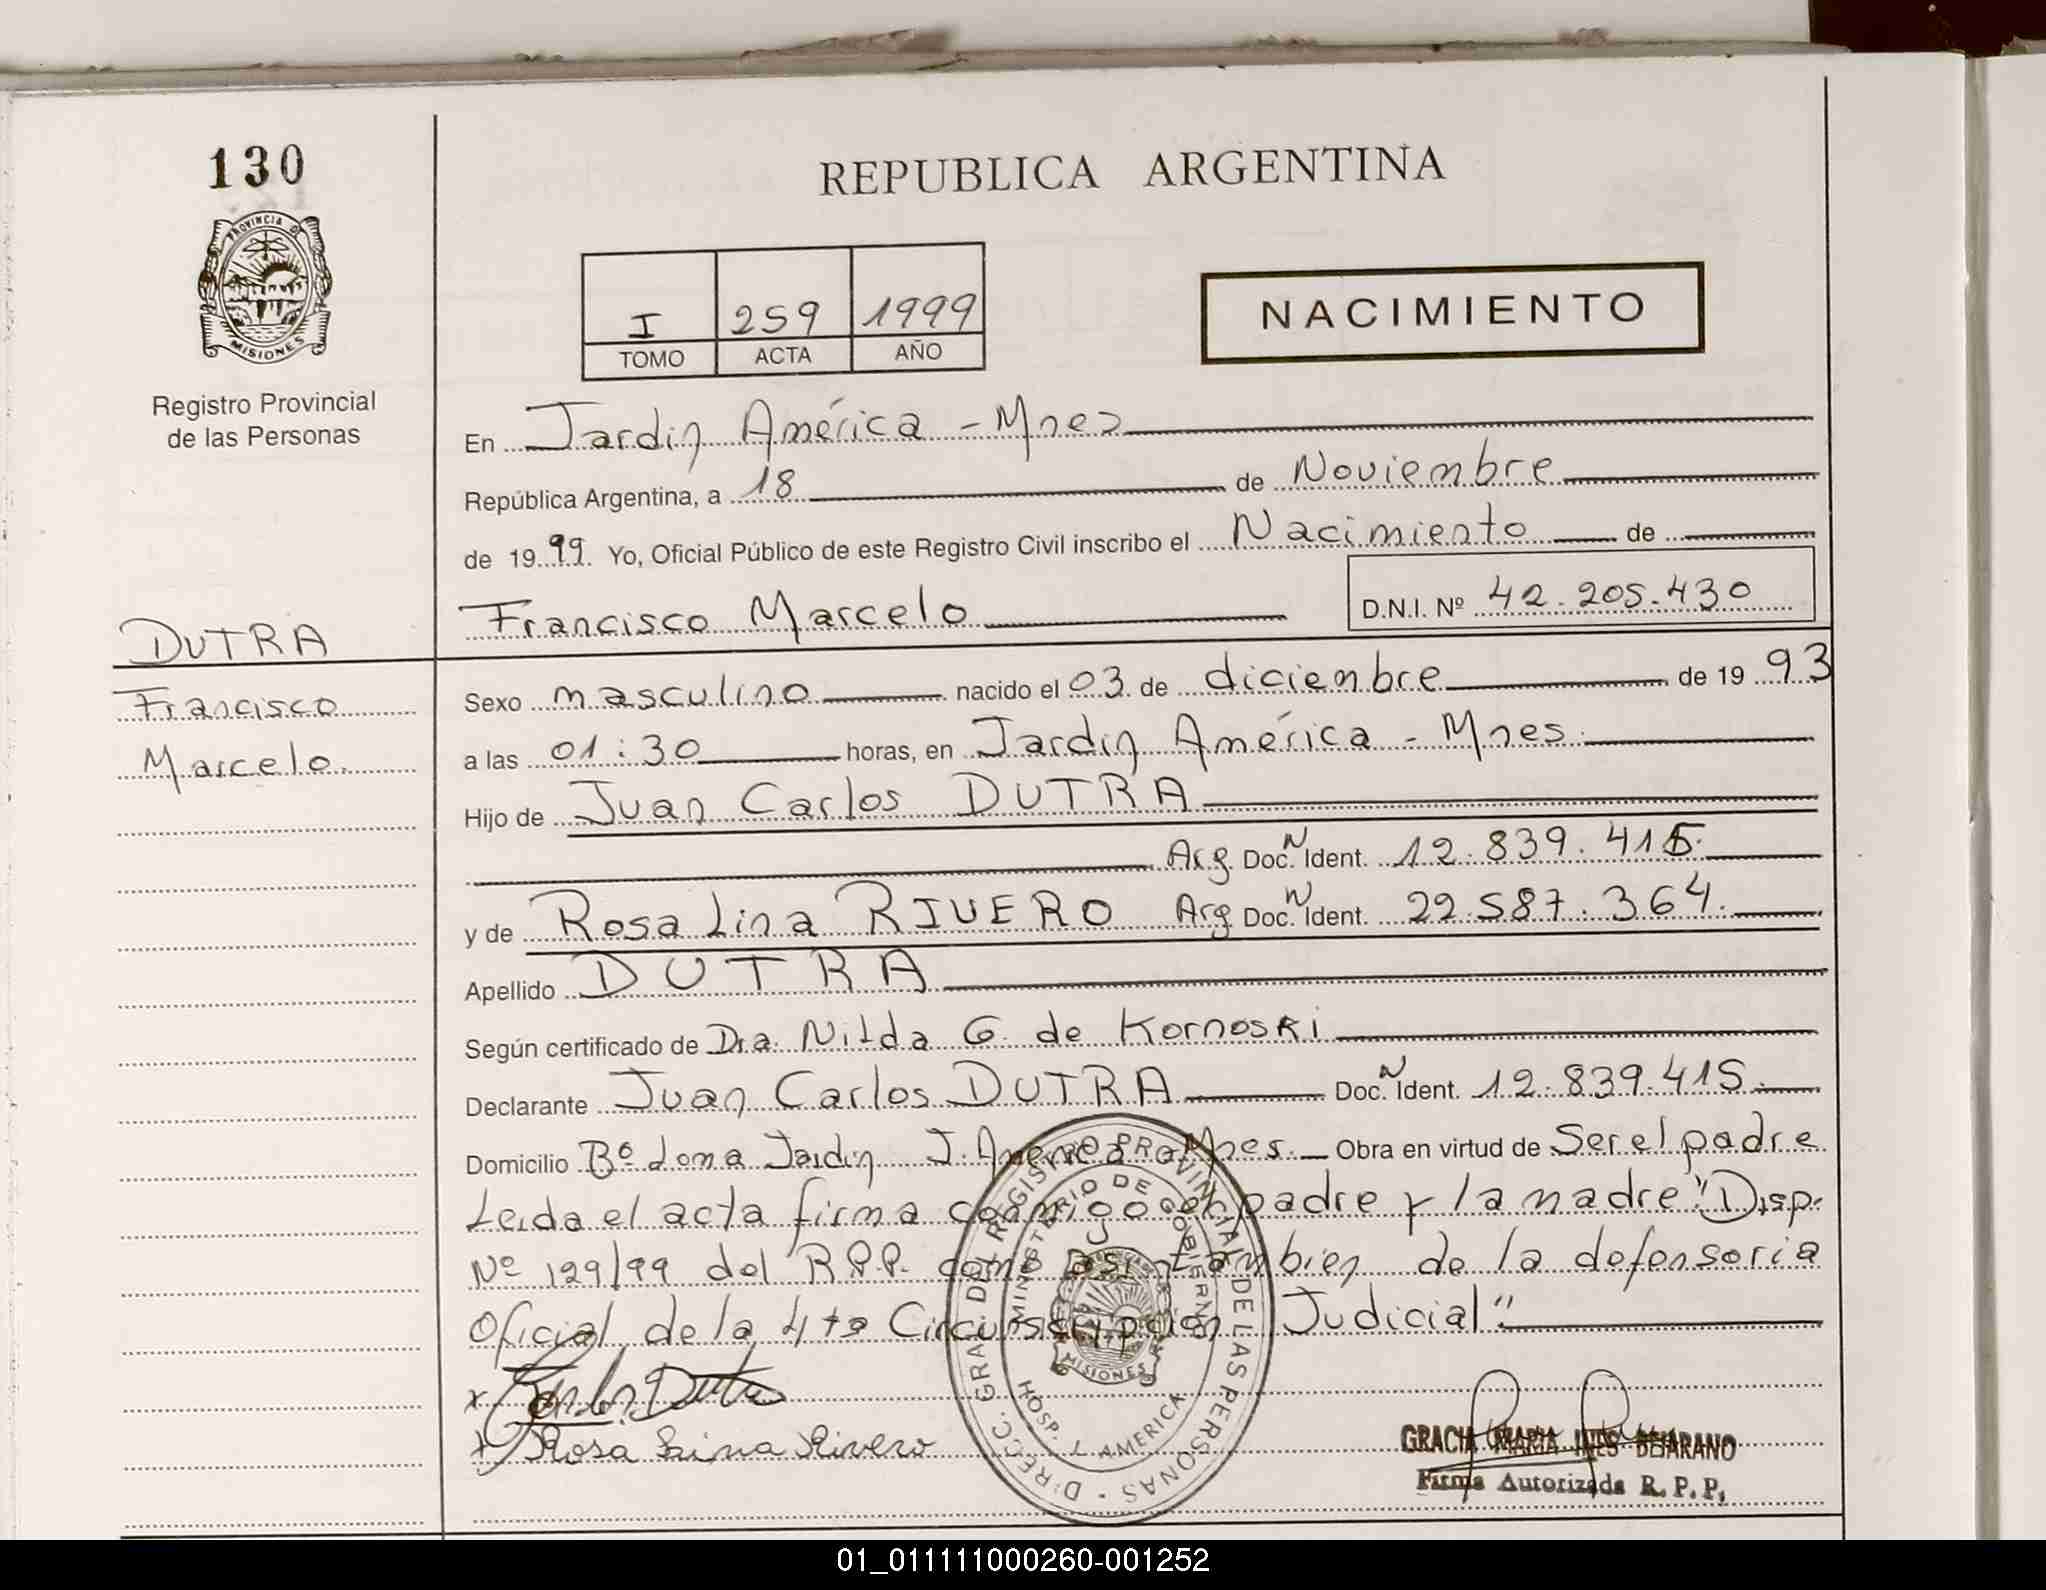 130
REPUBLICA ARGENTINA
PROVINCIA DE
MISIONES
I 259 1999
TOMO ACTA AÑO
NACIMIENTO
Registro Provincial
de las Personas
En Jardin América - Mnes
República Argentina, a 18 de Noviembre
de 1999. Yo, Oficial Público de este Registro Civil inscribo el Nacimiento de
Francisco Marcelo D.N.I. Nº 42.205.430
DUTRA
Francisco
Marcelo.
Sexo masculino nacido el 03 de diciembre de 1993
a las 01:30 horas, en Jardin América - Mnes.
Hijo de Juan Carlos DUTRA
Arg. Doc. N Ident. 12.839.415.
y de Rosa Lina RIVERO Arg Doc. N Ident. 22.587.364.
Apellido DUTRA
Según certificado de Dra. Nilda G. de Kornoski
Declarante Juan Carlos DUTRA Doc. N Ident. 12.839.415.
Domicilio Bº Loma Jardin J. América Mnes. Obra en virtud de Ser el padre
Leida el acta firma conmigo el padre y la madre "Disp.
Nº 129/99 del R.P.P. como asi tambien de la defensoria
Oficial de la 4ta Circunscripción Judicial"
x Carlos Dutra
x Rosa Lina Rivero
DIRECC. GRAL DEL REGISTRO PROVINCIAL DE LAS PERSONAS
MINISTERIO DE GOBIERNO
MISIONES
HOSP. J. AMERICA
GRACIA MARIA INES BEJARANO
Firma Autorizada R. P. P.
01_011111000260-001252